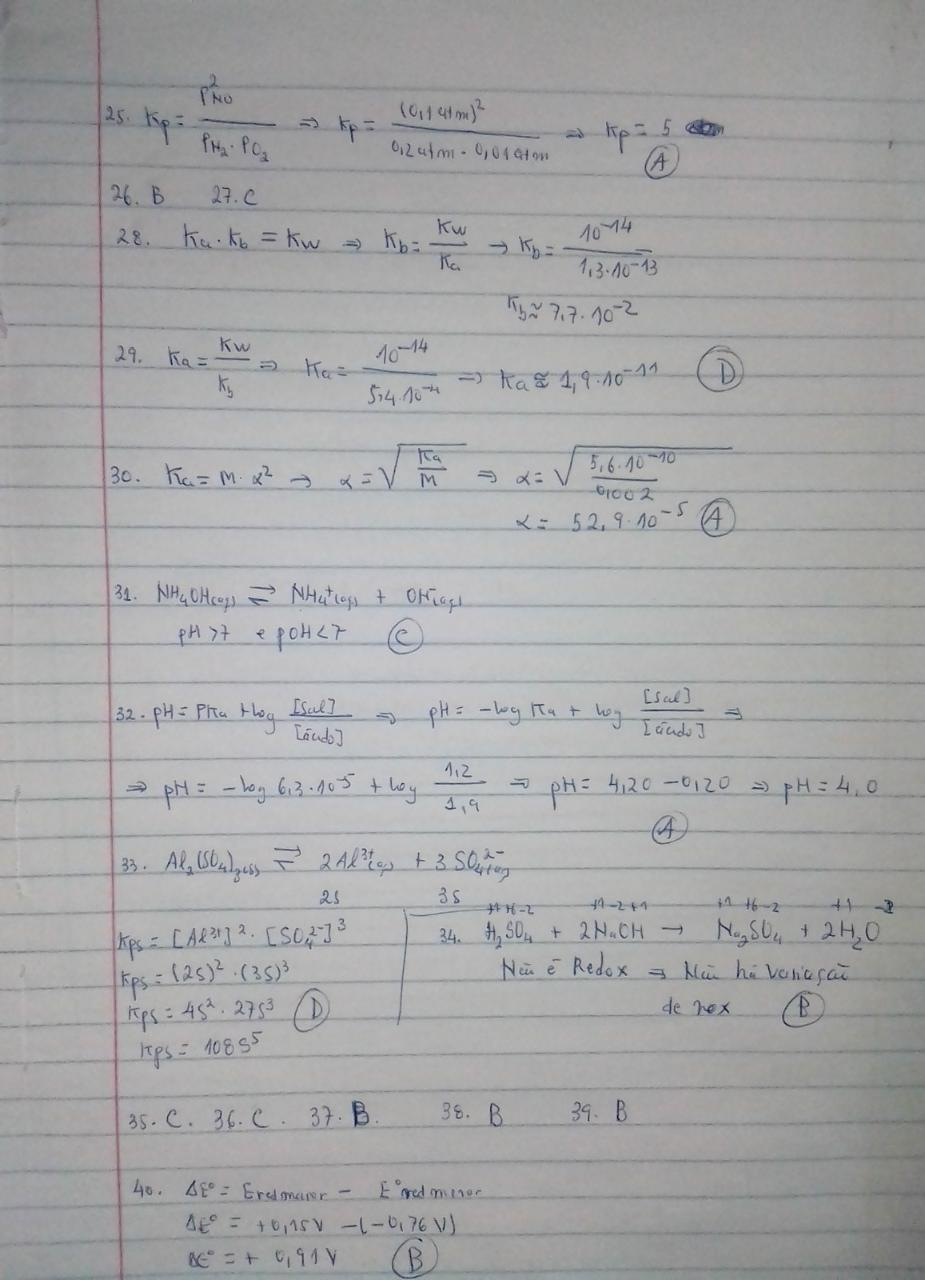 25. Kp = P²NO / PN₂ · PO₂ ⇒ Kp = (0,1 atm)² / 0,2 atm · 0,01 atm ⇒ Kp = 5
(A)
26. B 27. C
28. Ka · Kb = Kw ⇒ Kb = Kw / Ka → Kb = 10⁻¹⁴ / 1,3·10⁻¹³
Kb ≈ 7,7 · 10⁻²
29. Ka = Kw / Kb ⇒ Ka = 10⁻¹⁴ / 5,4·10⁻⁴ ⇒ Ka ≅ 1,9·10⁻¹¹ (D)
30. Ka = M · α² → α = √(Ka / M) ⇒ α = √(5,6·10⁻¹⁰ / 0,002)
α = 52,9·10⁻⁵ (A)
31. NH₄OH(aq) ⇌ NH₄⁺(aq) + OH⁻(aq)
pH > 7 e pOH < 7 (C)
32. pH = PKa + log [Sal] / [ácido] ⇒ pH = -log Ka + log [Sal] / [ácido] ⇒
⇒ pH = -log 6,3·10⁻⁵ + log 1,2 / 1,9 ⇒ pH = 4,20 - 0,20 ⇒ pH = 4,0
(A)
33. Al₂(SO₄)₃(s) ⇌ 2Al³⁺(aq) + 3SO₄²⁻(aq)
2S 3S
Kps = [Al³⁺]² · [SO₄²⁻]³
Kps = (2S)² · (3S)³
Kps = 4S² · 27S³ (D)
Kps = 108S⁵
+1 +6 -2 +1 -2 +1 +1 +6 -2 +1 -2
34. H₂SO₄ + 2NaOH → Na₂SO₄ + 2H₂O
Não é Redox ⇒ Não há variação
de nox (B)
35. C. 36. C. 37. B. 38. B 39. B
40. ΔE° = Ered maior - E°red menor
ΔE° = +0,15V - (-0,76V)
ΔE° = + 0,91V (B)